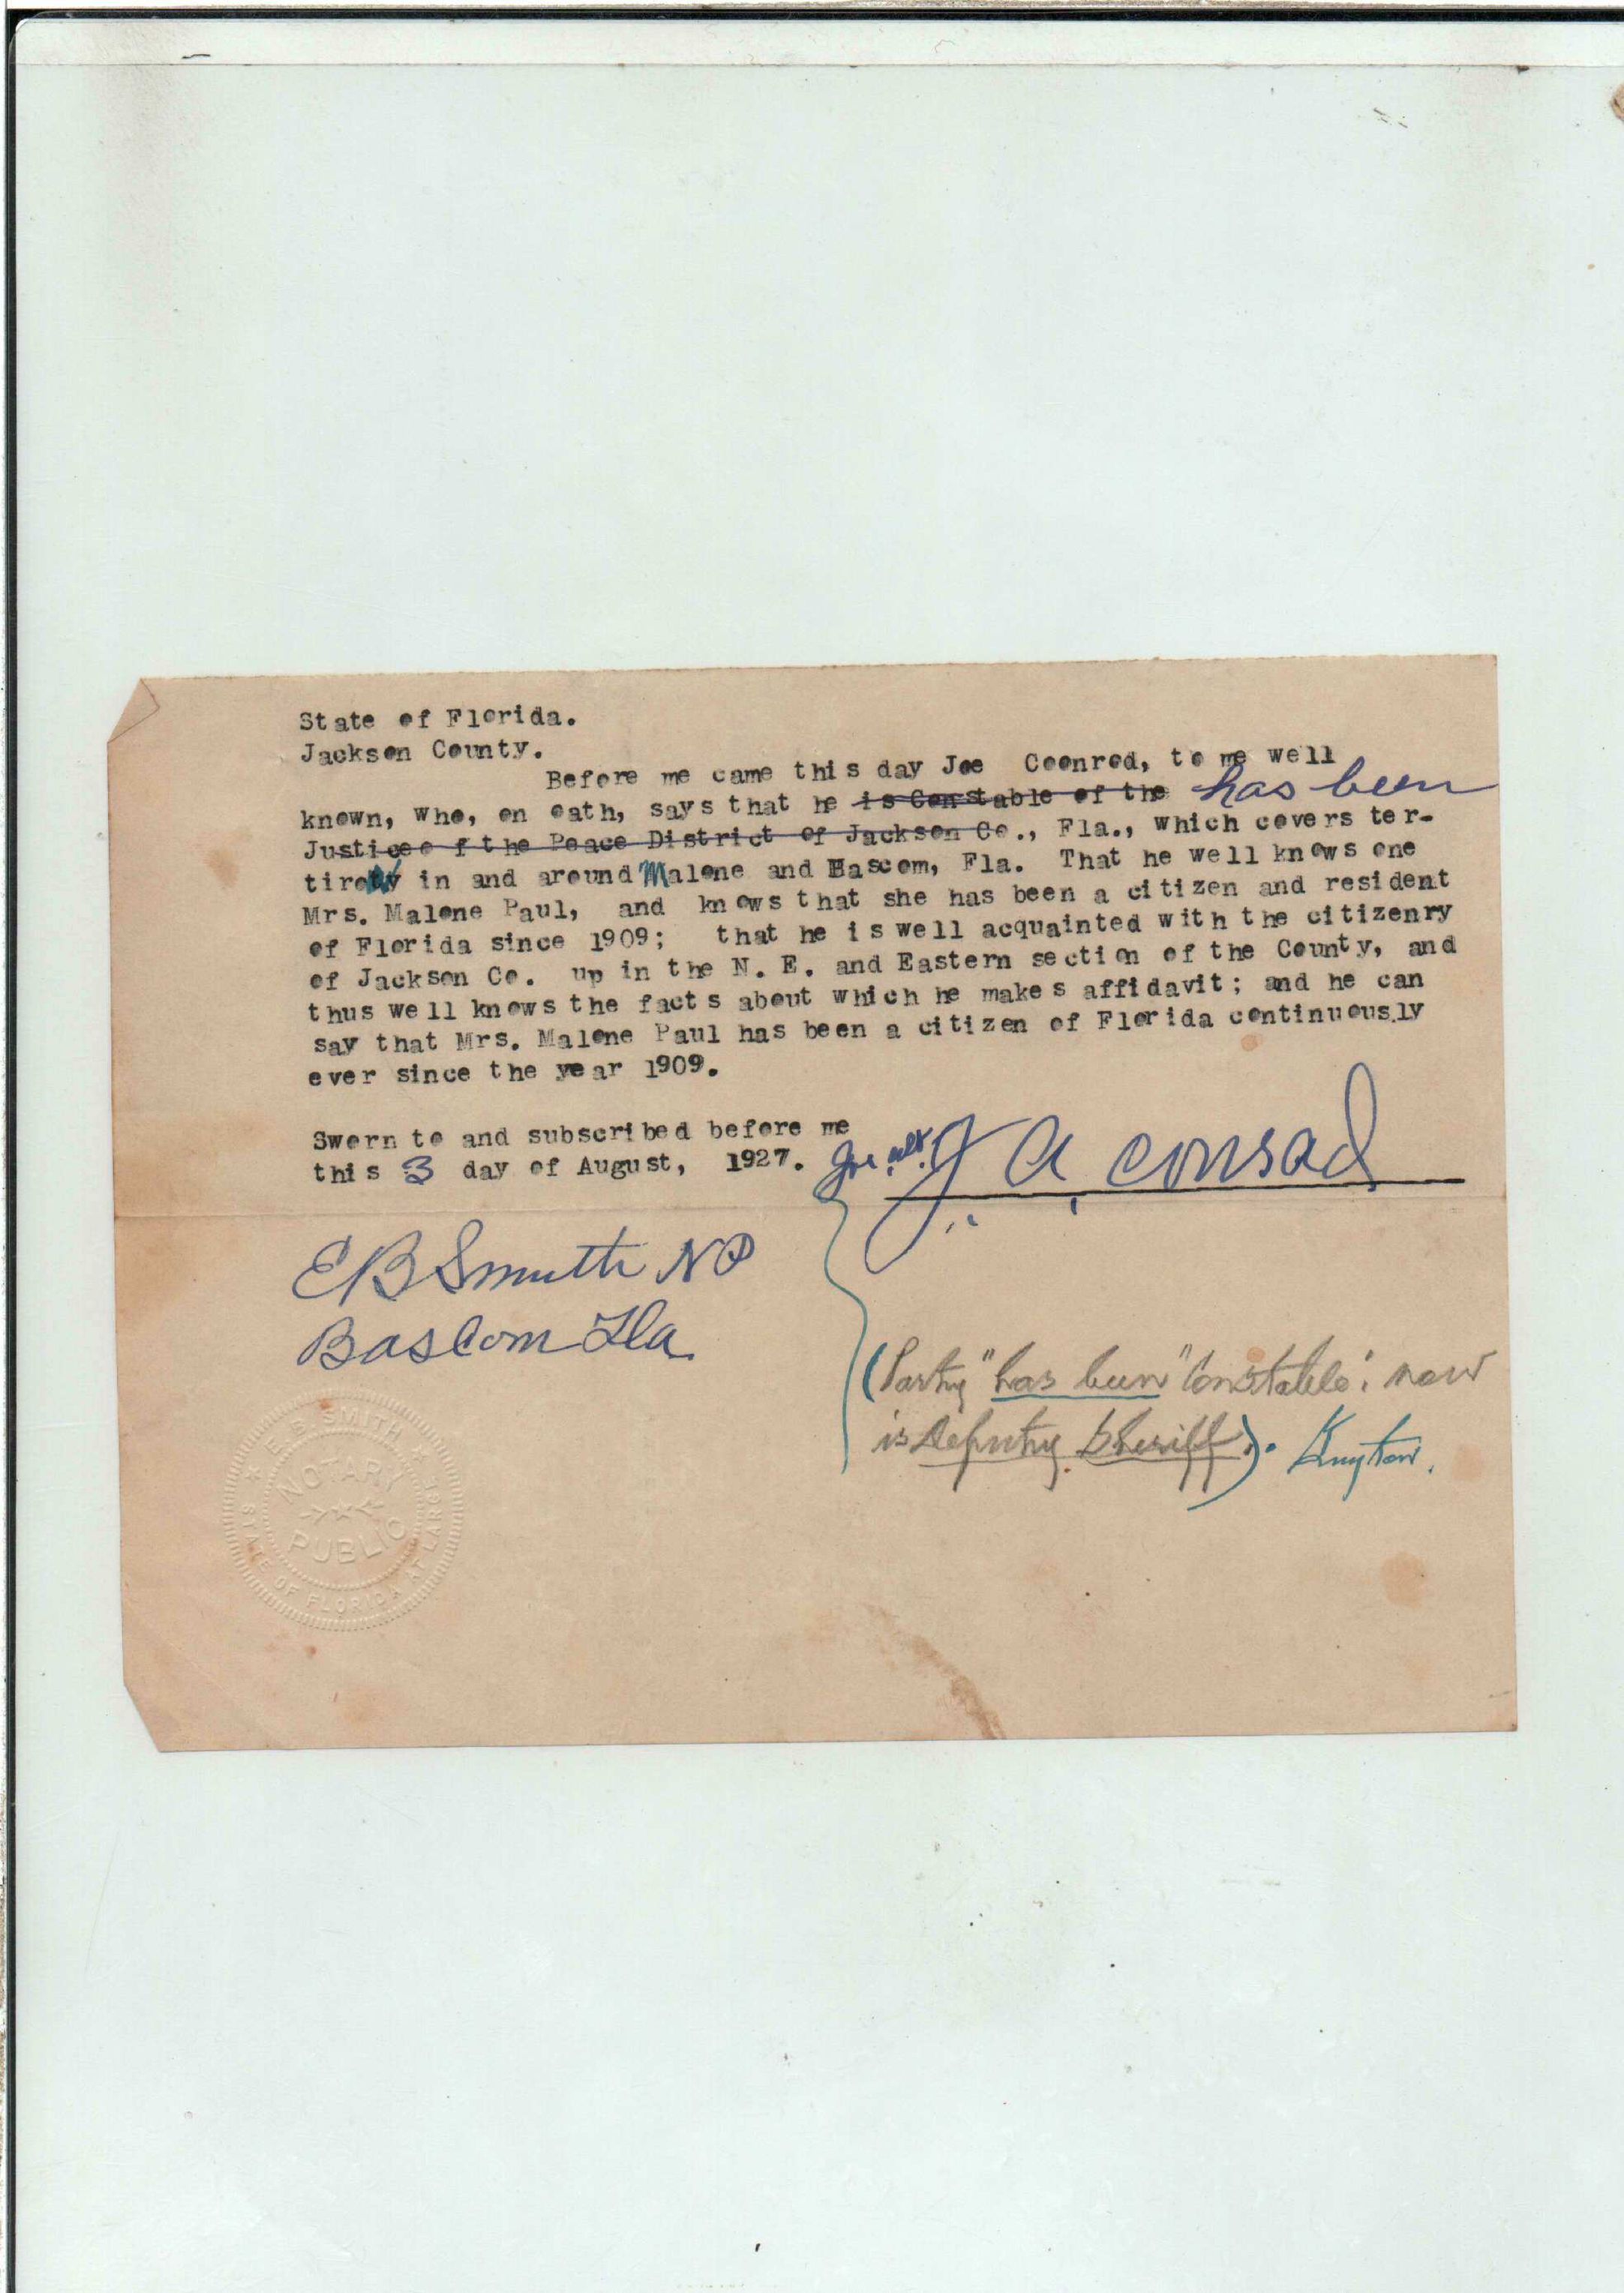 State of Florida.
Jackson County.
Before me came this day Joe Coonrod, to me well
known, who, on oath, says that he is Constable of the has been
Justice of the Peace District of Jackson Co., Fla., which covers ter-
tirory in and around Malone and Bascom, Fla. That he well knows one
Mrs. Malone Paul, and knows that she has been a citizen and resident
of Florida since 1909; that he is well acquainted with the citizenry
of Jackson Co. up in the N. E. and Eastern section of the County, and
thus well knows the facts about which he makes affidavit; and he can
say that Mrs. Malone Paul has been a citizen of Florida continuously
ever since the year 1909.
Sworn to and subscribed before me
this 3 day of August, 1927.
J A Conrad
E B Smith NP
Bascom Fla
(Party "has been" Constable; now
is Deputy Sheriff).
E. B. SMITH
NOTARY
PUBLIC
STATE OF FLORIDA AT LARGE